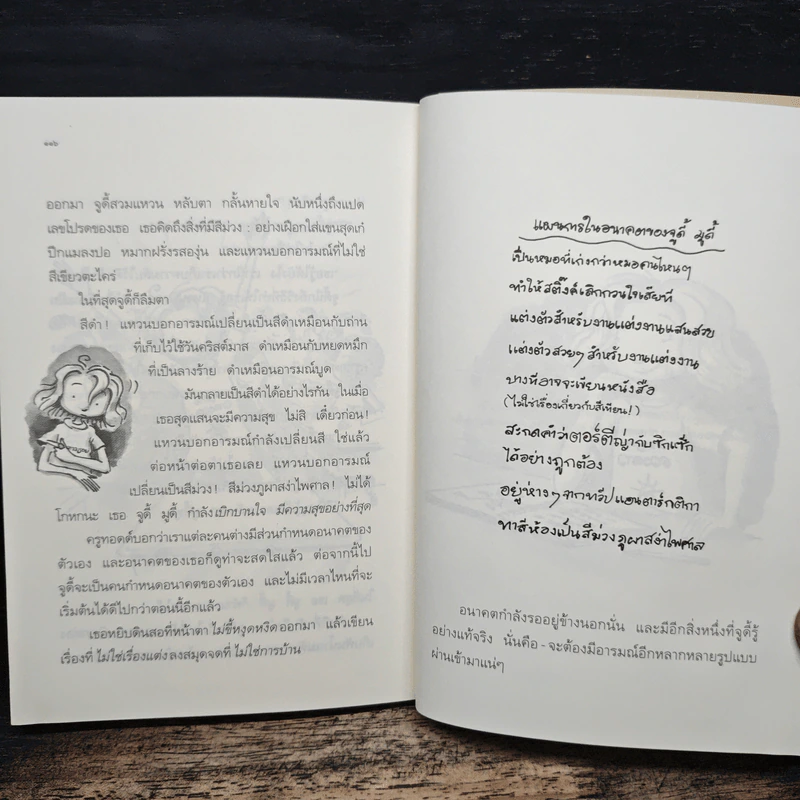 ๑๑๖
ออกมา จูดี้สวมแหวน หลับตา กลั้นหายใจ นับหนึ่งถึงแปด
เลขโปรดของเธอ เธอคิดถึงสิ่งที่มีสีม่วง : อย่างเฝือกใส่แขนสุดเก๋
ปีกแมลงปอ หมากฝรั่งรสองุ่น และแหวนบอกอารมณ์ที่ไม่ใช่
สีเขียวตะไคร่
ในที่สุดจูดี้ก็ลืมตา
สีดำ! แหวนบอกอารมณ์เปลี่ยนเป็นสีดำเหมือนกับถ่าน
ที่เก็บไว้ใช้วันคริสต์มาส ดำเหมือนกับหยดหมึก
ที่เป็นลางร้าย ดำเหมือนอารมณ์บูด
มันกลายเป็นสีดำได้อย่างไรกัน ในเมื่อ
เธอสุดแสนจะมีความสุข ไม่สิ เดี๋ยวก่อน!
แหวนบอกอารมณ์กำลังเปลี่ยนสี ใช่แล้ว
ต่อหน้าต่อตาเธอเลย แหวนบอกอารมณ์
เปลี่ยนเป็นสีม่วง! สีม่วงภูผาสง่าไพศาล! ไม่ได้
โกหกนะ เธอ จูดี้ มูดี้ กำลังเบิกบานใจ มีความสุขอย่างที่สุด
ครูทอดด์บอกว่าเราแต่ละคนต่างมีส่วนกำหนดอนาคตของ
ตัวเอง และอนาคตของเธอก็ดูท่าจะสดใสแล้ว ต่อจากนี้ไป
จูดี้จะเป็นคนกำหนดอนาคตของตัวเอง และไม่มีเวลาไหนที่จะ
เริ่มต้นได้ดีไปกว่าตอนนี้อีกแล้ว
เธอหยิบดินสอที่หน้าตา ไม่ขี้หงุดหงิด ออกมา แล้วเขียน
เรื่องที่ ไม่ใช่เรื่องแต่ง ลงสมุดจดที่ ไม่ใช่การบ้าน
แผนการในอนาคตของจูดี้ มูดี้
เป็นหมอที่เก่งกว่าหมอคนไหนๆ
ทำให้สติ๊งค์เลิกกวนใจเสียที
แต่งตัวสำหรับงานแต่งงานแสนสวย
แต่งตัวสวยๆ สำหรับงานแต่งงาน
บางทีอาจจะเขียนหนังสือ
(ไม่ใช่เรื่องเกี่ยวกับสีเทียน!)
สะกดคำว่าตอร์ตีญ่ากับซิกแซ็ก
ได้อย่างถูกต้อง
อยู่ห่างๆ จากทวีปแอนตาร์กติกา
ทาสีห้องเป็นสีม่วงภูผาสง่าไพศาล
อนาคตกำลังรออยู่ข้างนอกนั่น และมีอีกสิ่งหนึ่งที่จูดี้รู้
อย่างแท้จริง นั่นคือ - จะต้องมีอารมณ์อีกหลากหลายรูปแบบ
ผ่านเข้ามาแน่ๆ